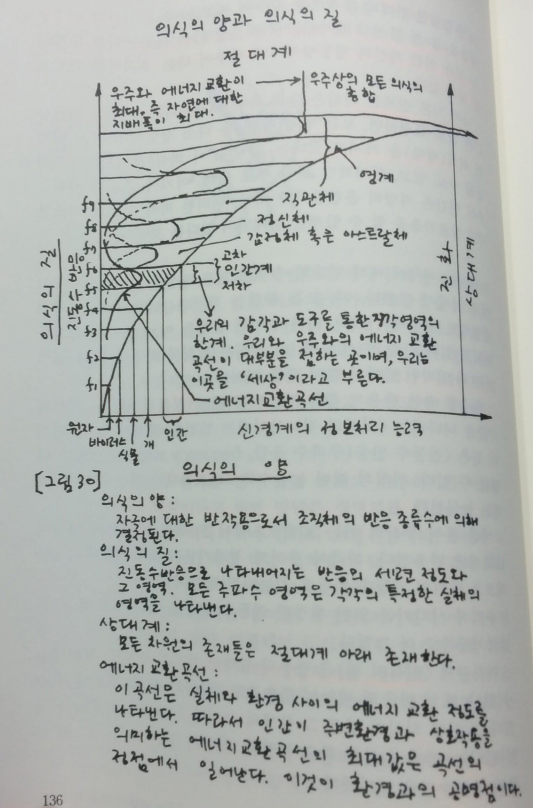 의식의 양과 의식의 질
절대계
우주와 에너지 교환이
최대. 즉 자연에 대한
지배폭이 최대.
우주상의 모든 의식의
총합
영계
직관체
정신체
감정체 혹은 아스트랄체
고차
인간계
저차
우리의 감각과 도구를 통한 지각영역의
한계. 우리와 우주와의 에너지 교환
곡선이 대부분을 접하는 곳이며, 우리는
이곳을 '세상'이라고 부른다.
에너지교환곡선
의식의 질
진동수 반응
f9
f8
f7
f6
f5
f4
f3
f2
f1
진화
상대계
원자
바이러스
식물
개
인간
신경계의 정보처리 능력
의식의 양
[그림 30]
의식의 양:
자극에 대한 반작용으로서 조직체의 반응 종류수에 의해
결정된다.
의식의 질:
진동수반응으로 나타내어지는 반응의 세련 정도와
그 영역. 모든 주파수 영역은 각각의 특정한 실체의
영역을 나타낸다.
상대계:
모든 차원의 존재들은 절대계 아래 존재한다.
에너지 교환곡선:
이 곡선은 실체와 환경 사이의 에너지 교환 정도를
나타낸다. 따라서 인간이 주변환경과 상호작용을
의미하는 에너지교환곡선의 최대값은 곡선의
정점에서 일어난다. 이것이 환경과의 공명점이다.
136